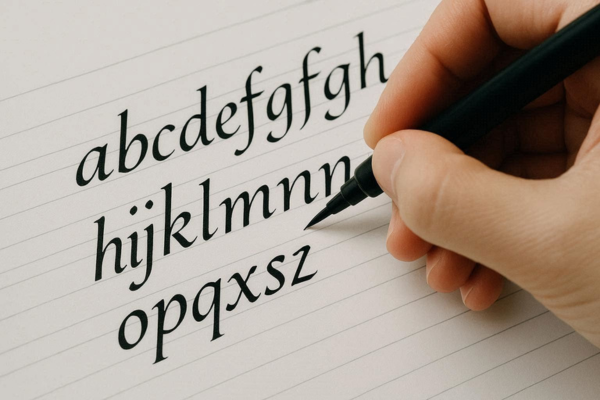 abcdefgfgh
hijklmnnn
opqxsz